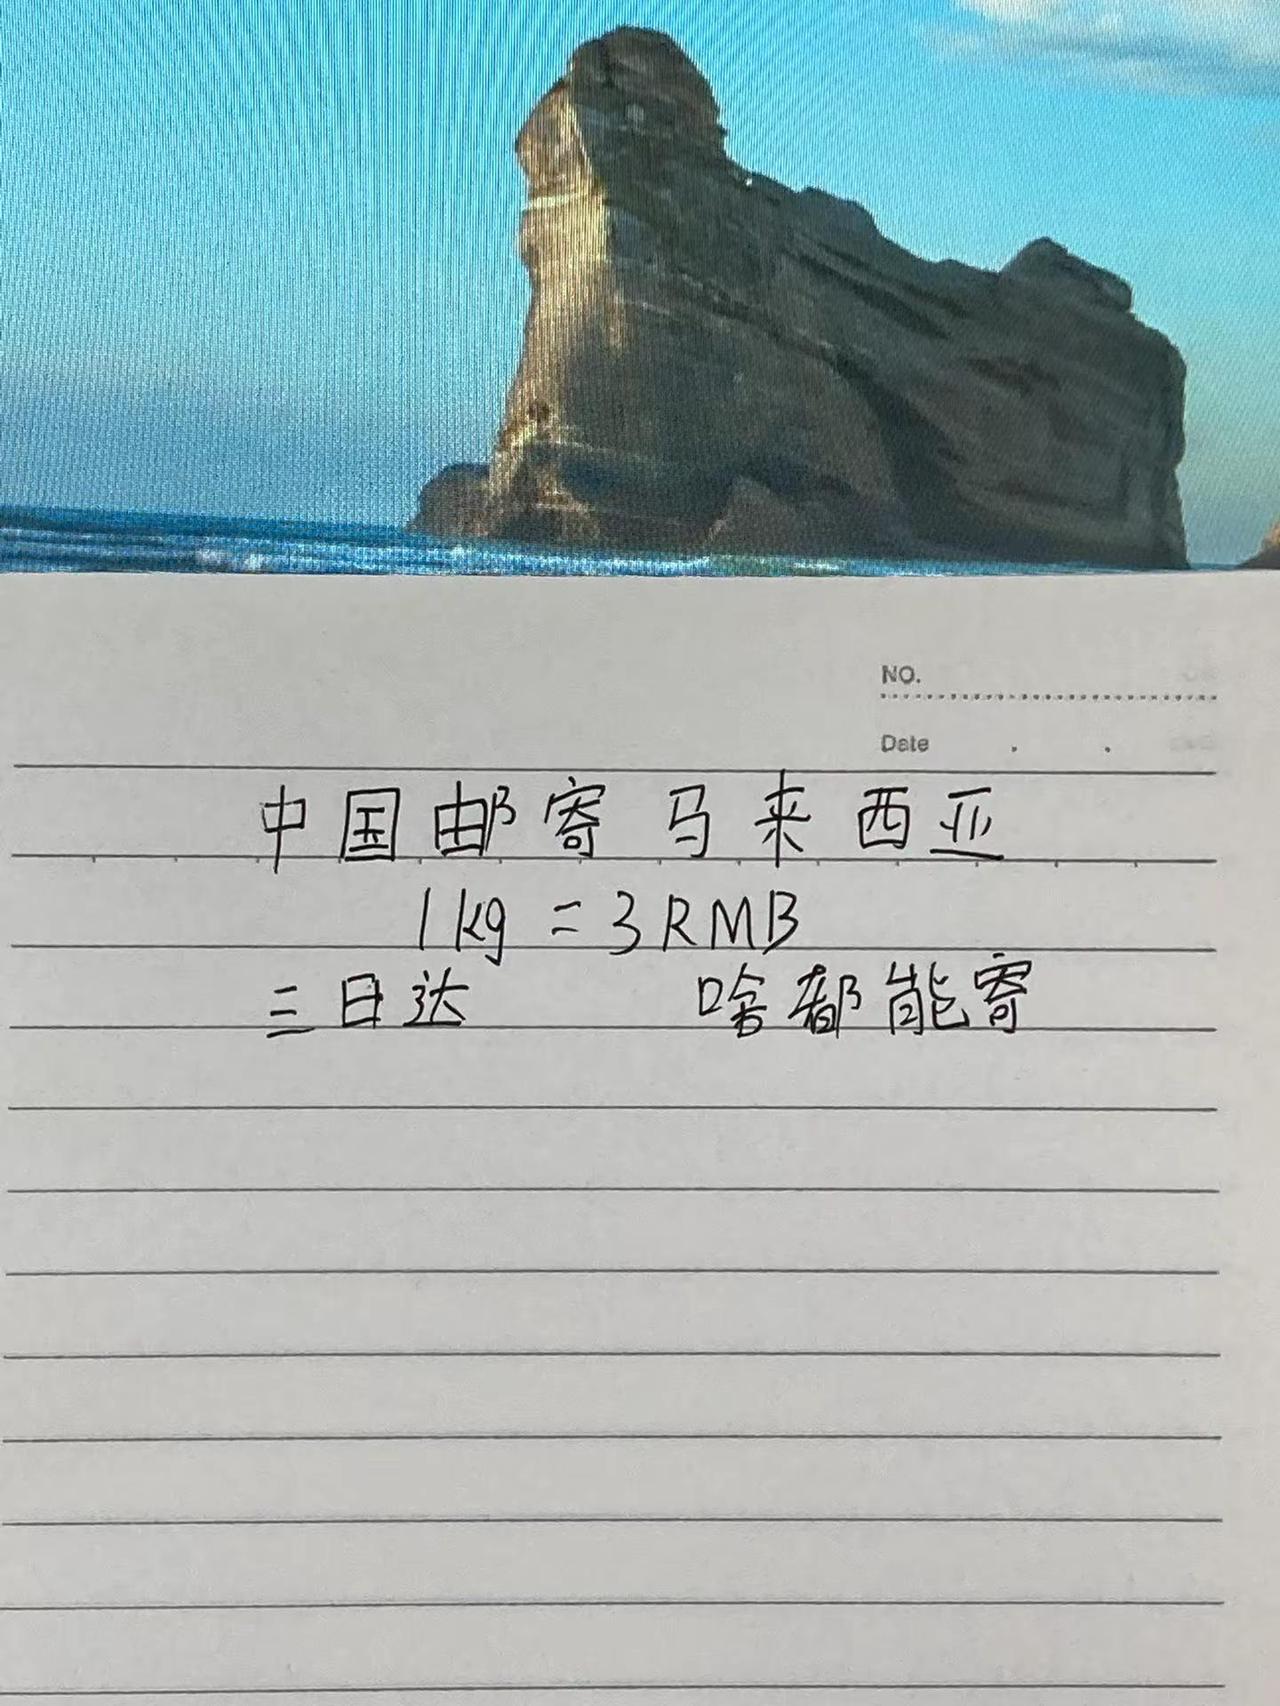 NO.
Date . .
中国邮寄马来西亚
1kg=3RMB
三日达 啥都能寄